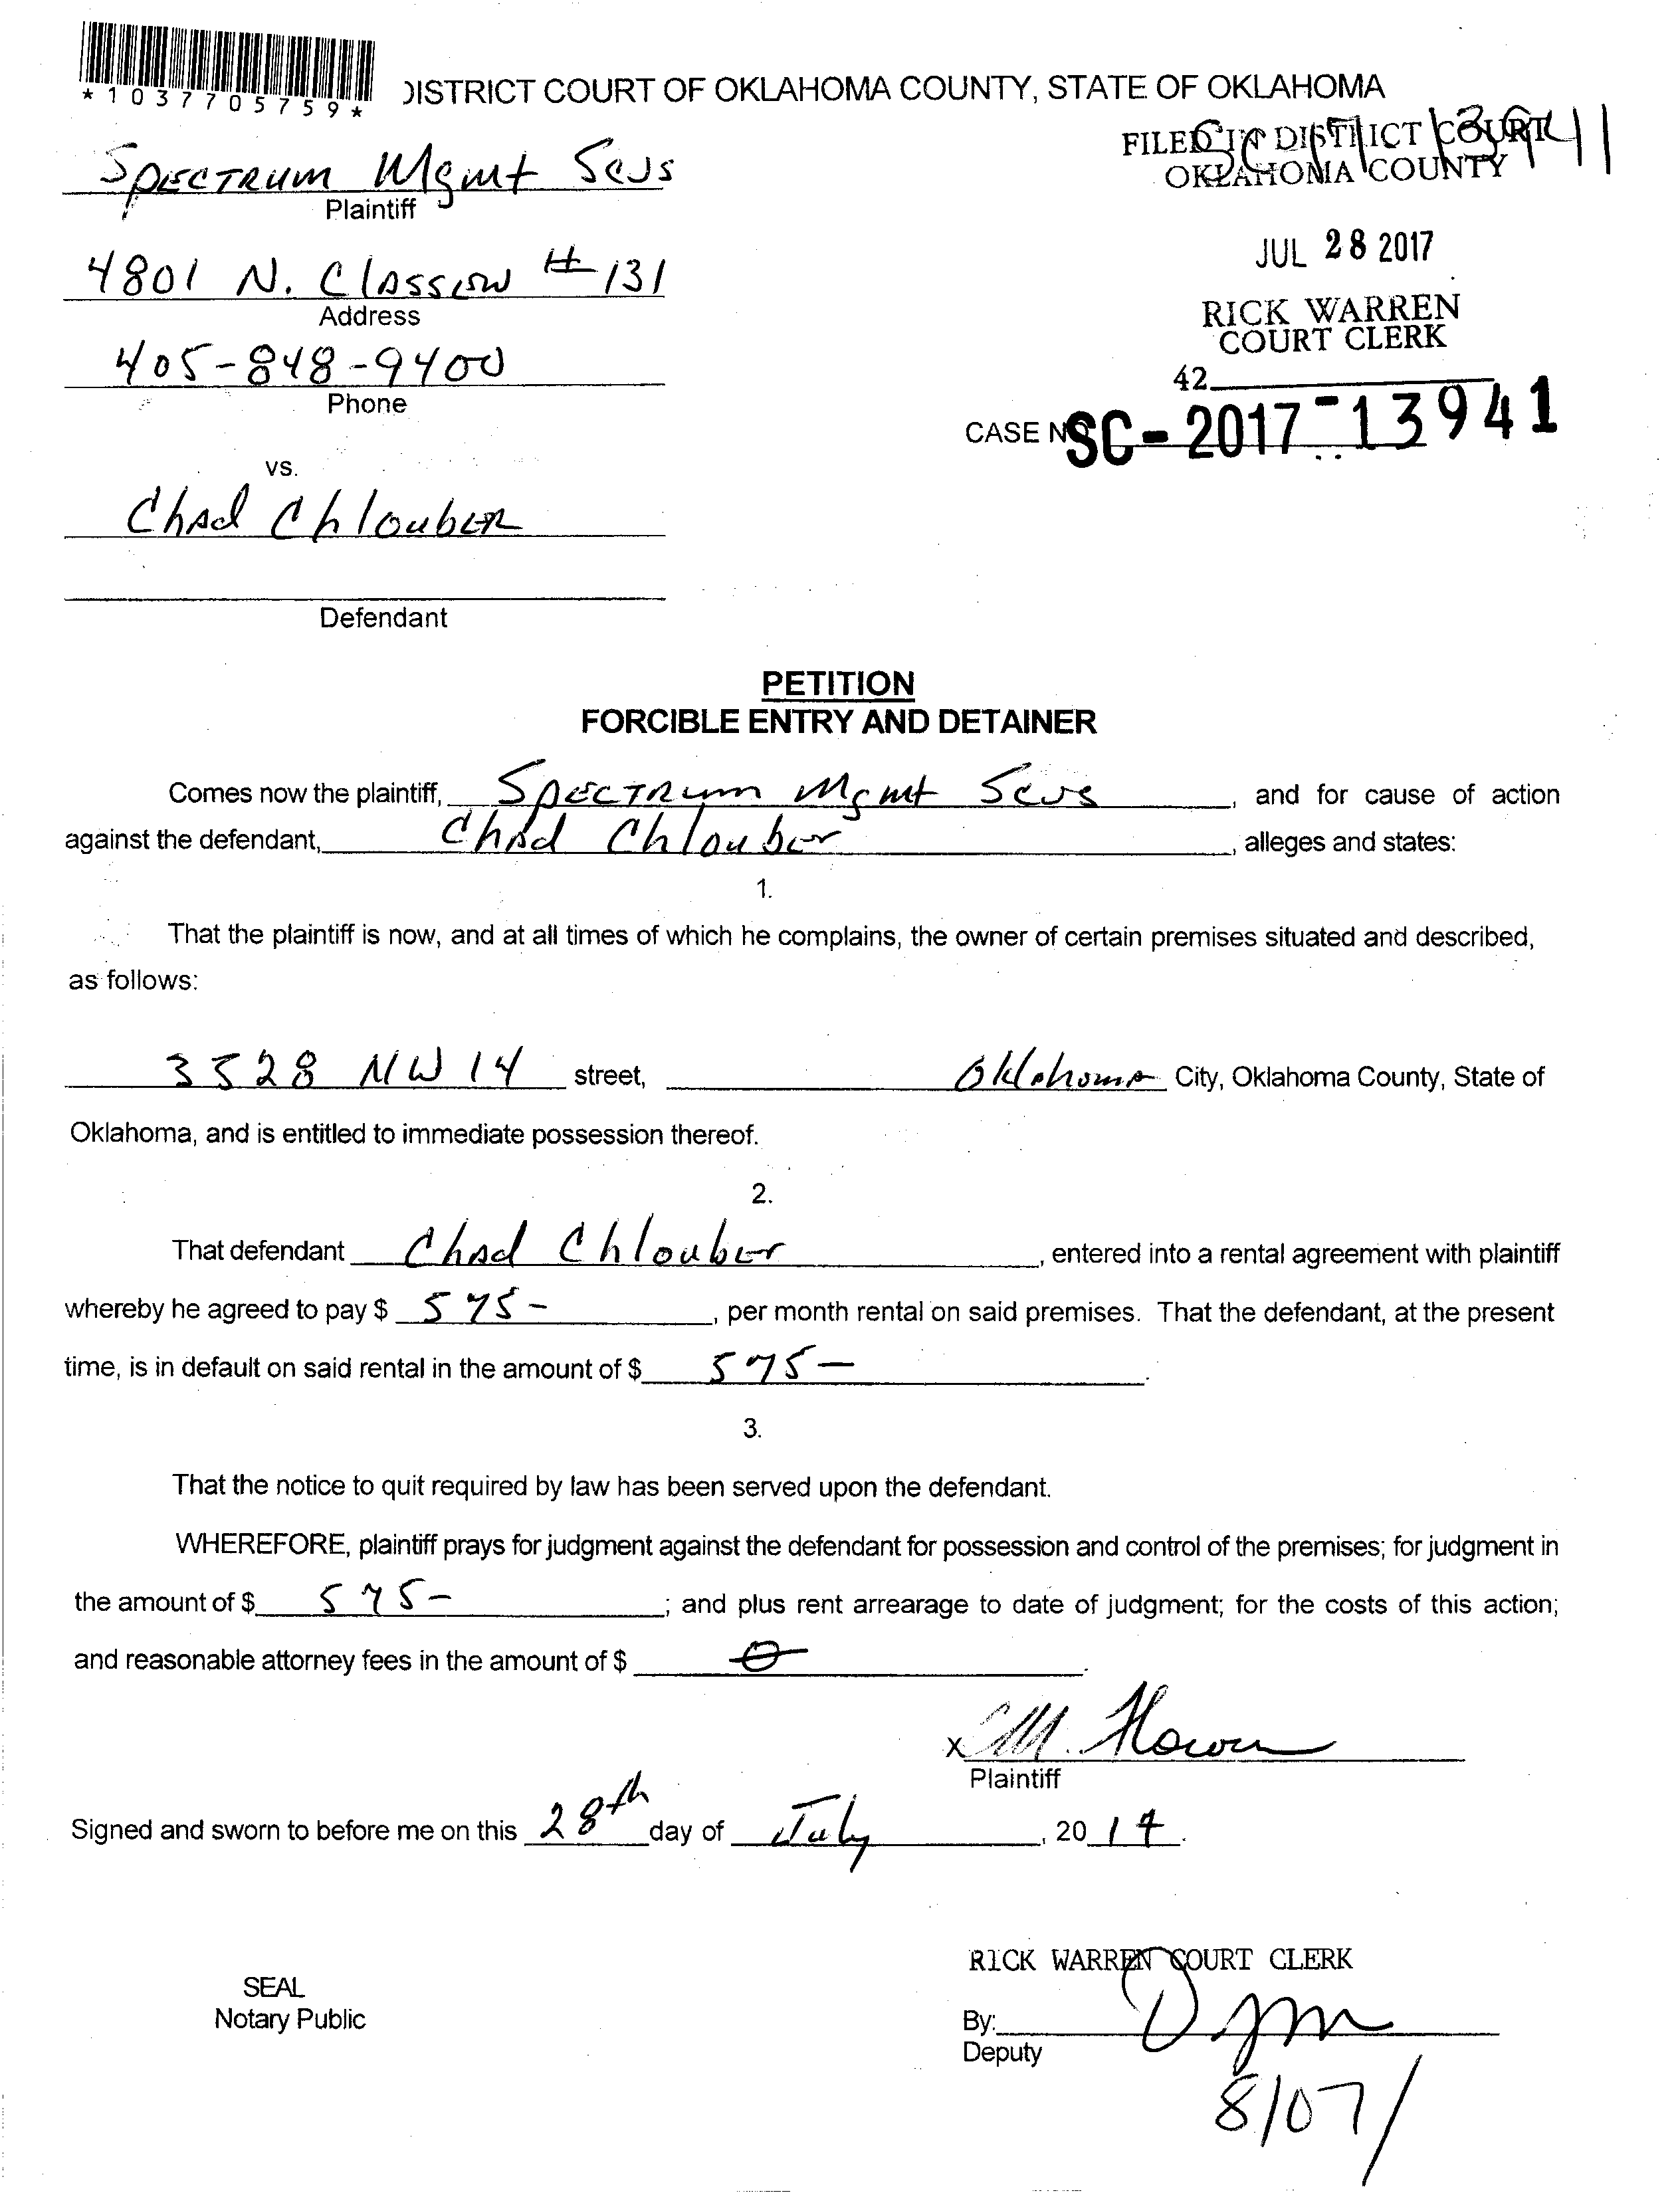 *1037705759*
DISTRICT COURT OF OKLAHOMA COUNTY, STATE OF OKLAHOMA
Spectrum Mgmt Scvs
Plaintiff
FILED IN DISTRICT COURT
OKLAHOMA COUNTY
SC 17 13941
4801 N. Classen #131
Address
JUL 28 2017
405-848-9400
Phone
RICK WARREN
COURT CLERK
42
CASE NO SC-2017-13941
vs.
Chad Chlouber
Defendant
PETITION
FORCIBLE ENTRY AND DETAINER
Comes now the plaintiff, Spectrum Mgmt Scvs, and for cause of action
against the defendant, Chad Chlouber, alleges and states:
1.
That the plaintiff is now, and at all times of which he complains, the owner of certain premises situated and described,
as follows:
3528 NW 14 street, Oklahoma City, Oklahoma County, State of
Oklahoma, and is entitled to immediate possession thereof.
2.
That defendant Chad Chlouber, entered into a rental agreement with plaintiff
whereby he agreed to pay $ 575-, per month rental on said premises. That the defendant, at the present
time, is in default on said rental in the amount of $ 575-.
3.
That the notice to quit required by law has been served upon the defendant.
WHEREFORE, plaintiff prays for judgment against the defendant for possession and control of the premises; for judgment in
the amount of $ 575-; and plus rent arrearage to date of judgment; for the costs of this action;
and reasonable attorney fees in the amount of $ 0.
X M.
Plaintiff
Signed and sworn to before me on this 28th day of July, 2017.
RICK WARREN COURT CLERK
SEAL
Notary Public
By:
Deputy
8/07/